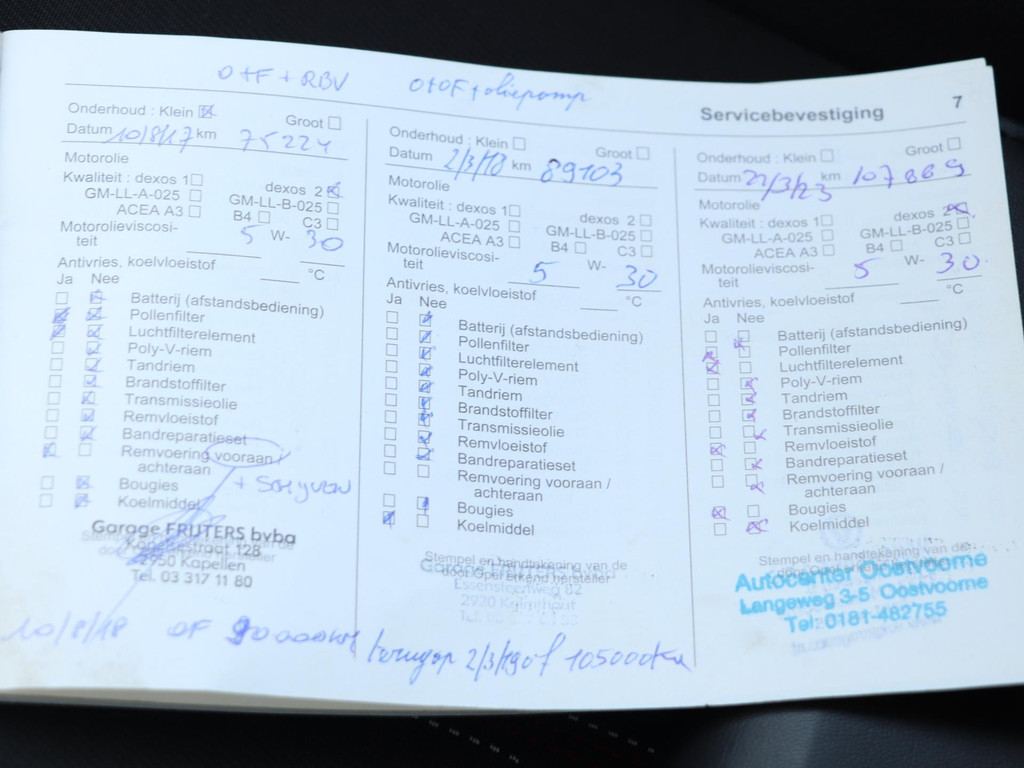 O+F + RBV
O+OF + oliepomp
Servicebevestiging 7
Onderhoud : Klein Groot
Datum 10/8/17 km 75224
Motorolie
Kwaliteit : dexos 1 dexos 2
GM-LL-A-025 GM-LL-B-025
ACEA A3 B4 C3
Motorolieviscosi-
teit 5 W- 30
Antivries, koelvloeistof °C
Ja Nee
Batterij (afstandsbediening)
Pollenfilter
Luchtfilterelement
Poly-V-riem
Tandriem
Brandstoffilter
Transmissieolie
Remvloeistof
Bandreparatieset
Remvoering vooraan /
achteraan
+ Schyven
Bougies
Koelmiddel
Garage FRIJTERS bvba
128
2950 Kapellen
Tel. 03 317 11 80
10/8/18 OF 90000km
Onderhoud : Klein Groot
Datum 2/3/18 km 89103
Motorolie
Kwaliteit : dexos 1 dexos 2
GM-LL-A-025 GM-LL-B-025
ACEA A3 B4 C3
Motorolieviscosi-
teit 5 W- 30
Antivries, koelvloeistof °C
Ja Nee
Batterij (afstandsbediening)
Pollenfilter
Luchtfilterelement
Poly-V-riem
Tandriem
Brandstoffilter
Transmissieolie
Remvloeistof
Bandreparatieset
Remvoering vooraan /
achteraan
Bougies
Koelmiddel
Stempel en handtekening van de
door Opel erkend hersteller
Essensteenweg 82
2920 Kalmthout
terugop 2/3/19 of 105000km
Onderhoud : Klein Groot
Datum 22/3/23 km 107869
Motorolie
Kwaliteit : dexos 1 dexos 2
GM-LL-A-025 GM-LL-B-025
ACEA A3 B4 C3
Motorolieviscosi-
teit 5 W- 30
Antivries, koelvloeistof °C
Ja Nee
Batterij (afstandsbediening)
Pollenfilter
Luchtfilterelement
Poly-V-riem
Tandriem
Brandstoffilter
Transmissieolie
Remvloeistof
Bandreparatieset
Remvoering vooraan /
achteraan
Bougies
Koelmiddel
Stempel en handtekening van de
door Opel erkend hersteller
Autocenter Oostvoorne
Langeweg 3-5 Oostvoorne
Tel: 0181-482755